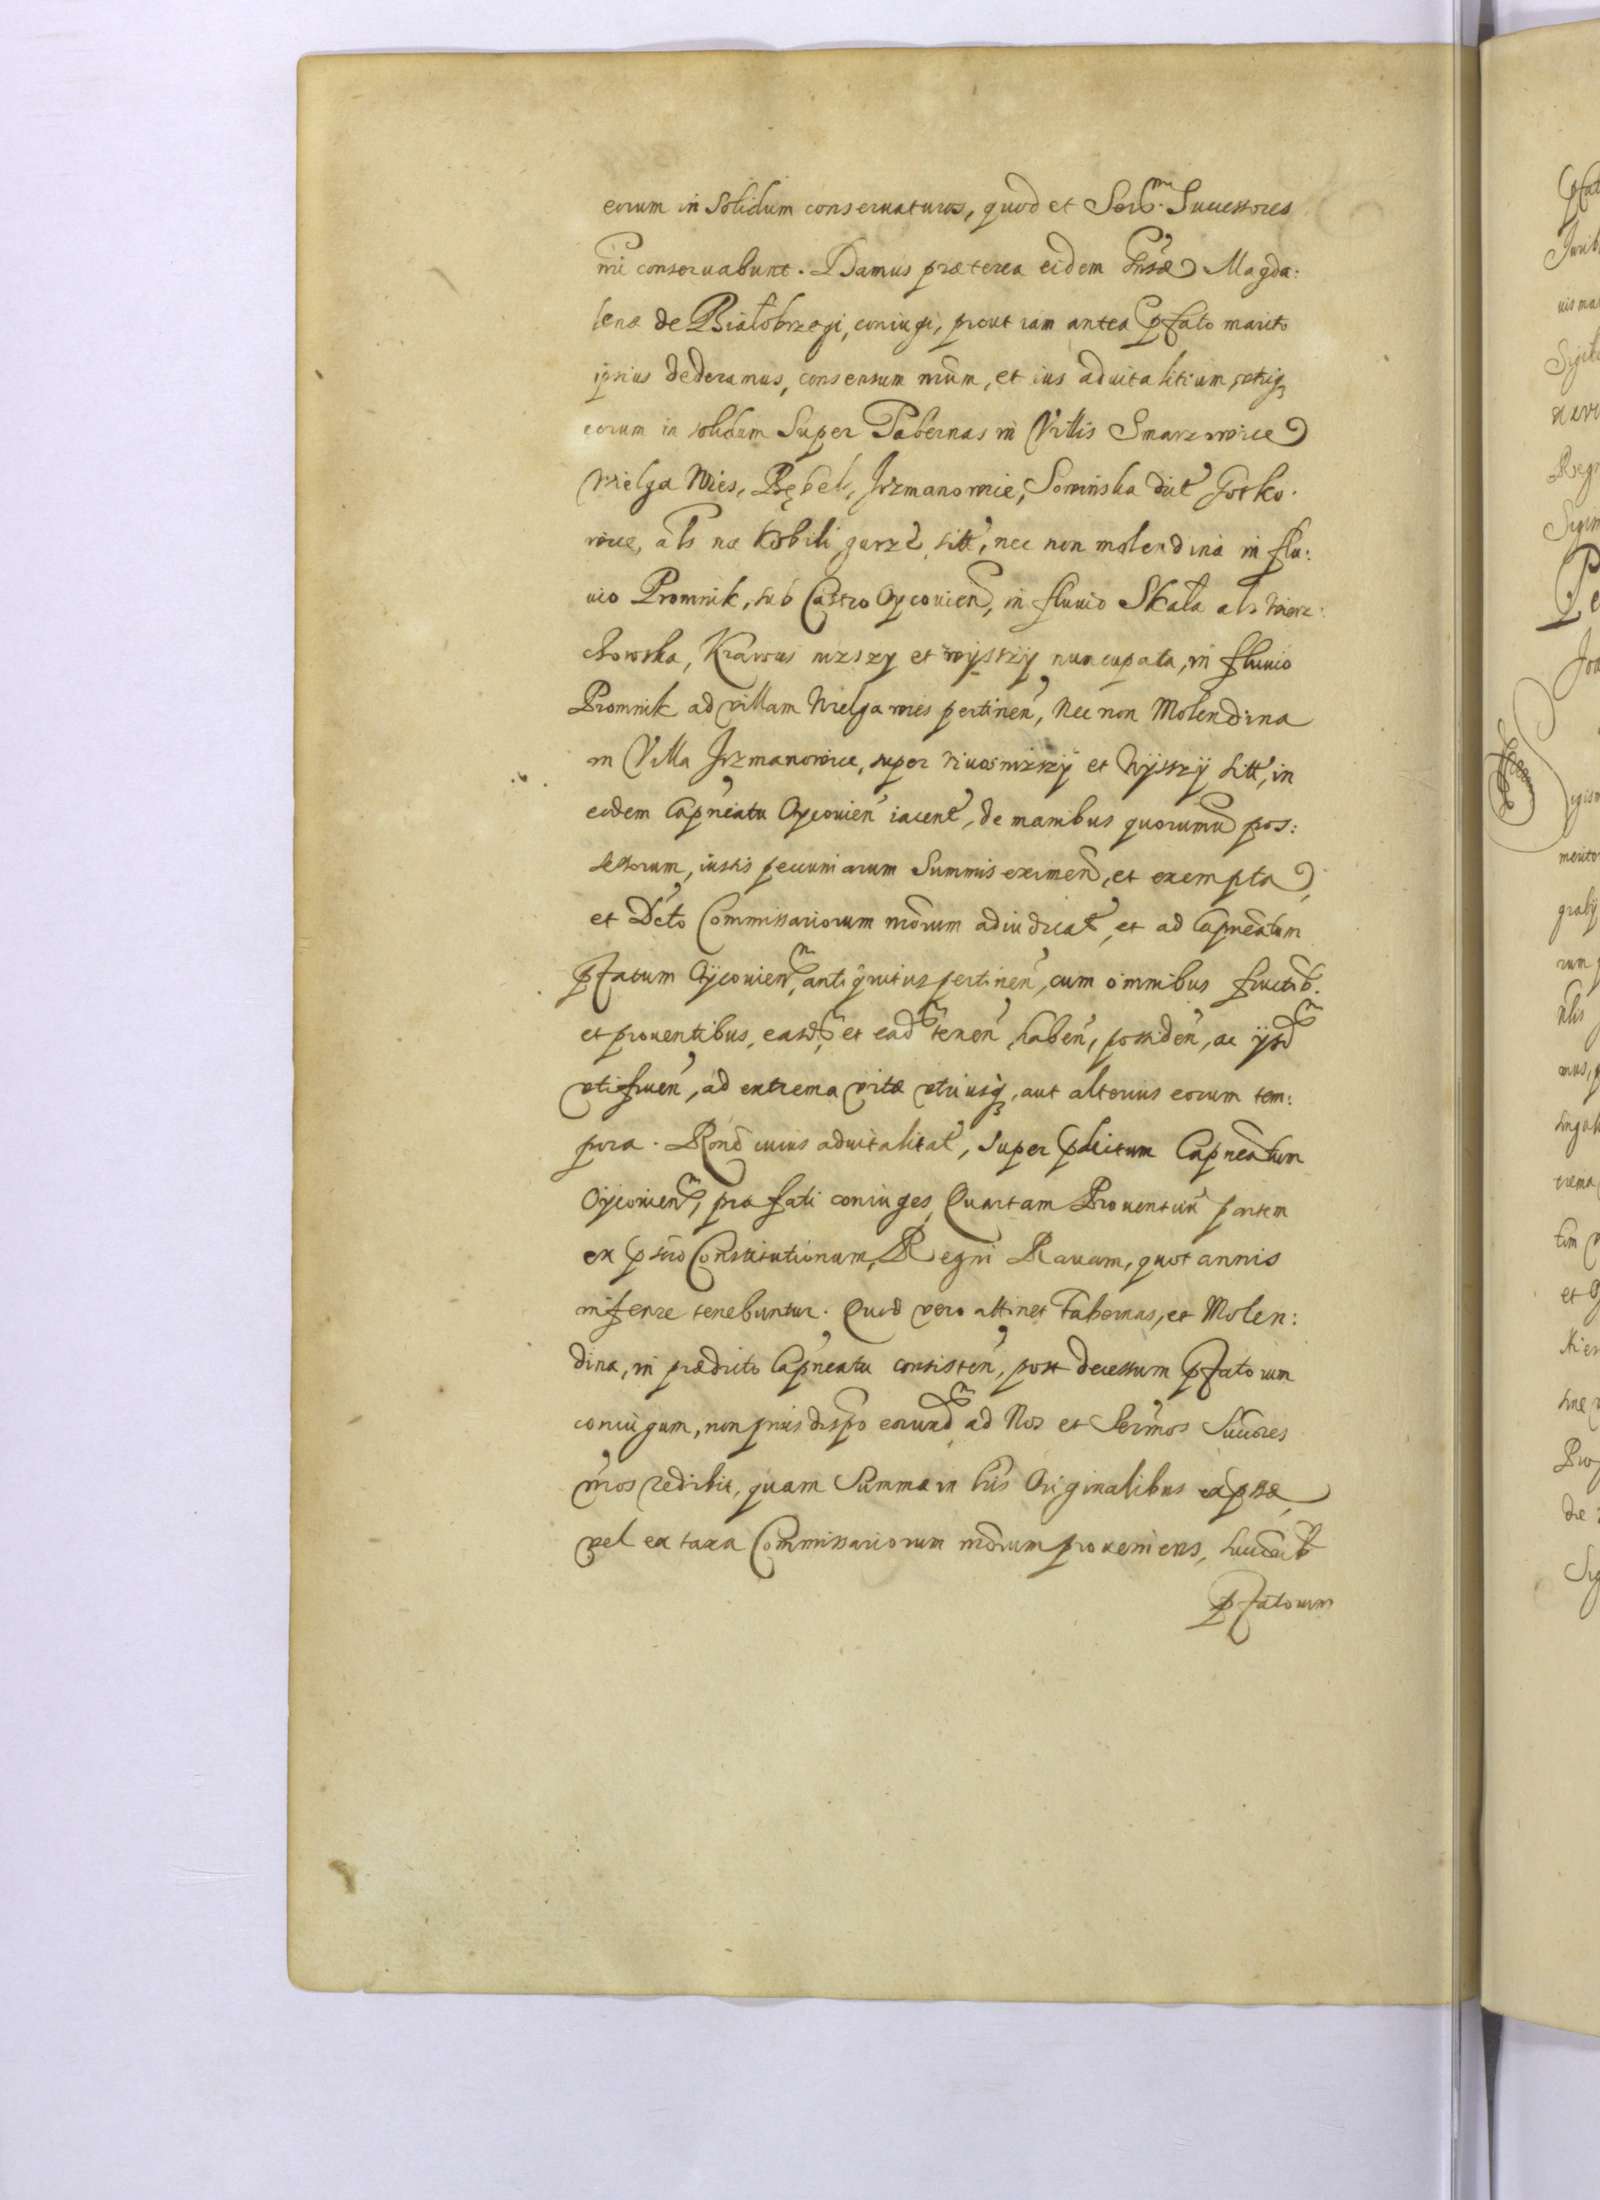 eorum in solidum conseruaturos, quod et Ser.mi Successores
nri conseruabunt. Damus præterea eidem Gnsæ Magda:
lenæ de Białobrzegi, coniugi, prout iam antea pfato marito
ipsius dederamus, consensum nrum, et ius aduitalitium, utriq
eorum in solidum super Tabernas in Villis Smarzowice
Wielga Wies, Bębel, Jrzmanowice, Sowinska dict Gotko
wice, als na Kobili garzd sitt, nec non molendina in flu:
uio Promnik, sub Castro Oycouien, in fluuio Skała als Wierz:
chowska, Krawus nizszy et wyszszy nuncupata, in fluuio
Promnik ad villam Wielga wies pertinen, Nec non Molendina
in Villa Jrzmanowice, super riuos nizszy et Wysszy sitt, in
eodem Capneatu Oycouien iacent, de manibus quorumuis pos:
sessorum, iustis pecuniarum summis eximen, et exempta,
et Dcto Commissariorum nrorum adiudicat, et ad Capneatum
pfatum Oycouien, antiquitus pertinen, cum omnibus fructib.
et prouentibus, easd, et ead tenen, haben, possiden, ac ysd
utifruen, ad extrema vitæ vtriusq, aut alterius eorum tem:
pora. Rone cuius aduitalitat, super pdictum Capneatum
Oycouien, præfati coniuges, Quartam Prouentuu partem
ex pscro Constitutionum, Regni Rauam, quotannis
inferre tenebuntur. Quod vero attinet Tabernas, et Molen:
dina, in prædicto Capneatu consisten, post decessum pfatorum
coniugum, non prius dispo eorund ad Nos et Sermos Succores
nros redibit, quam Summa in lris Originalibus expssa,
vel ex taxa Commissariorum nrorum proueniens, succorib
pfatorum